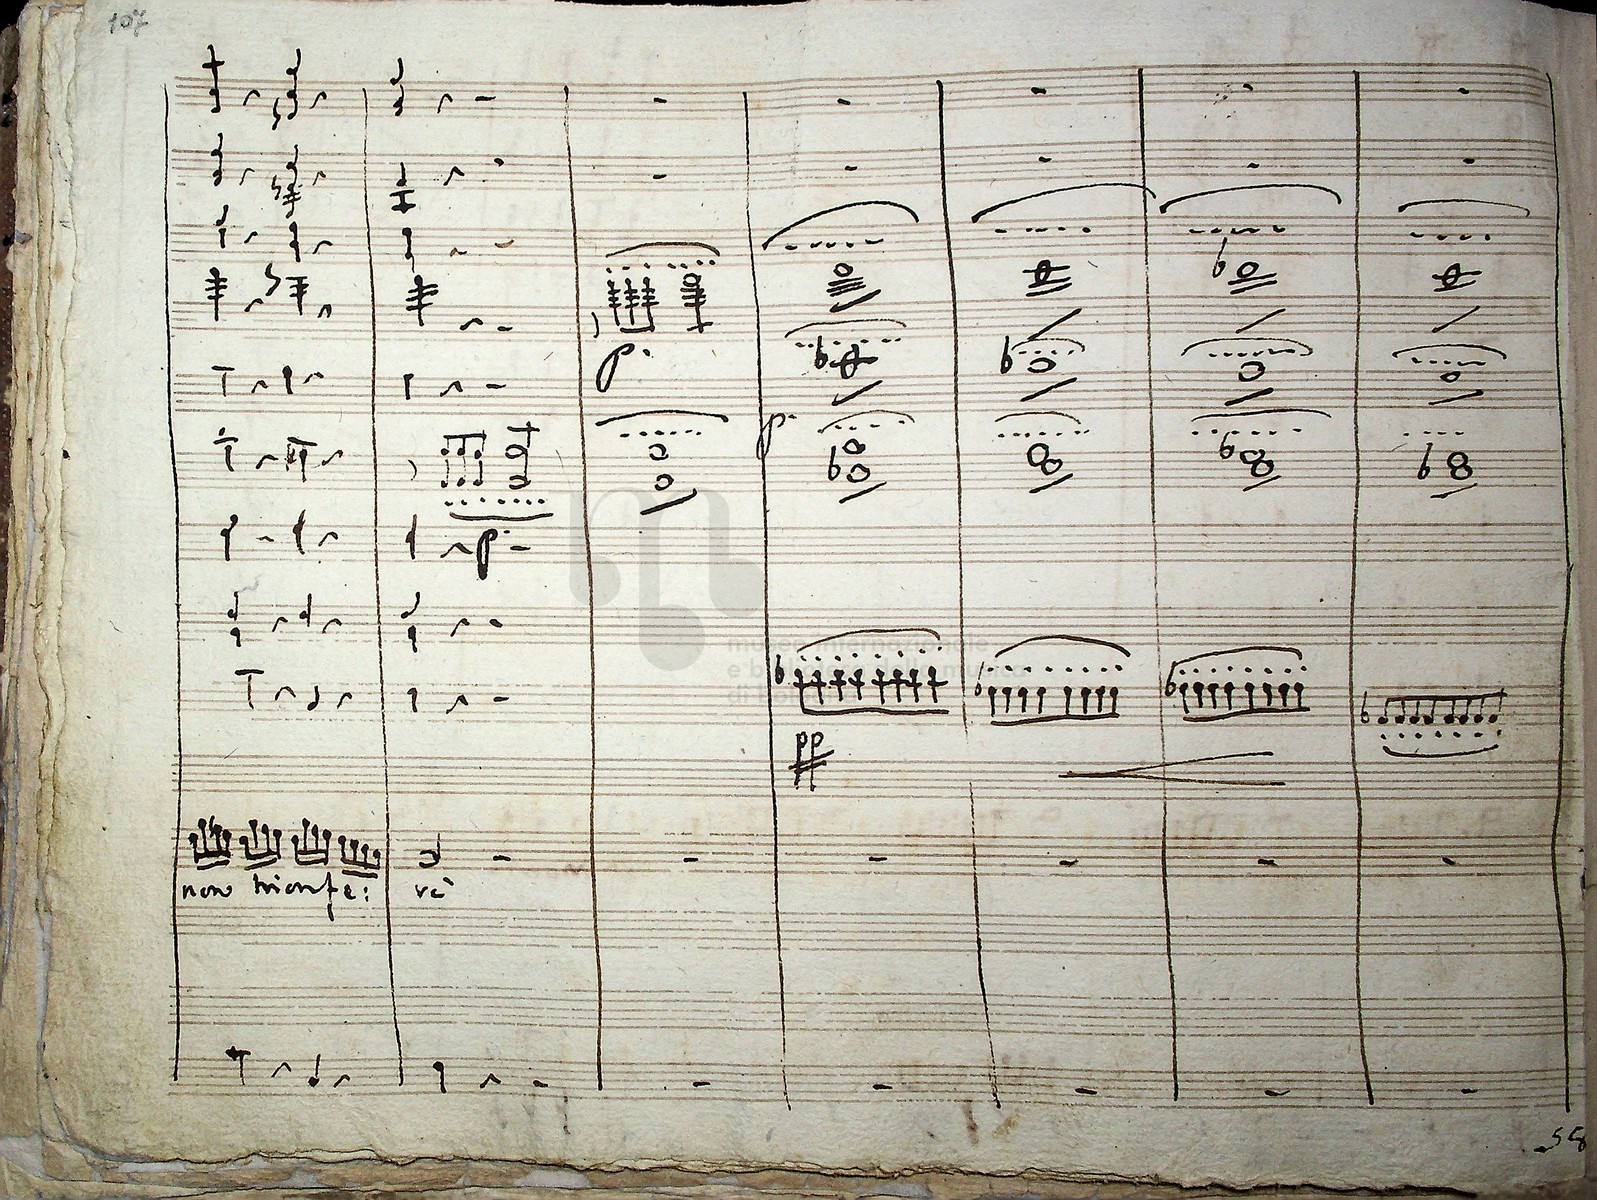 107
p.
p.
p.
museo internazionale
e biblioteca della musica
di
pp
non trionfe: rà
58